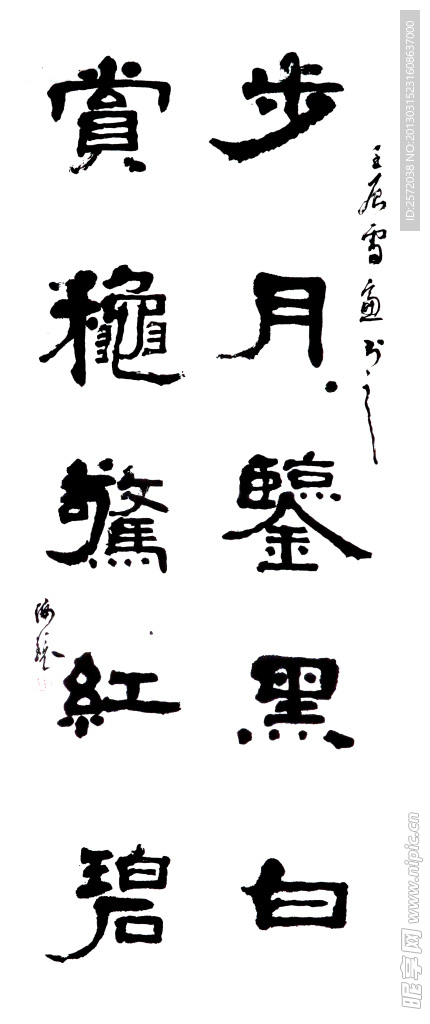 步月鑒黑白
賞龝驚紅碧
壬辰雪
ID:2572038 NO:20130315231608637000
昵享网 www.nipic.cn